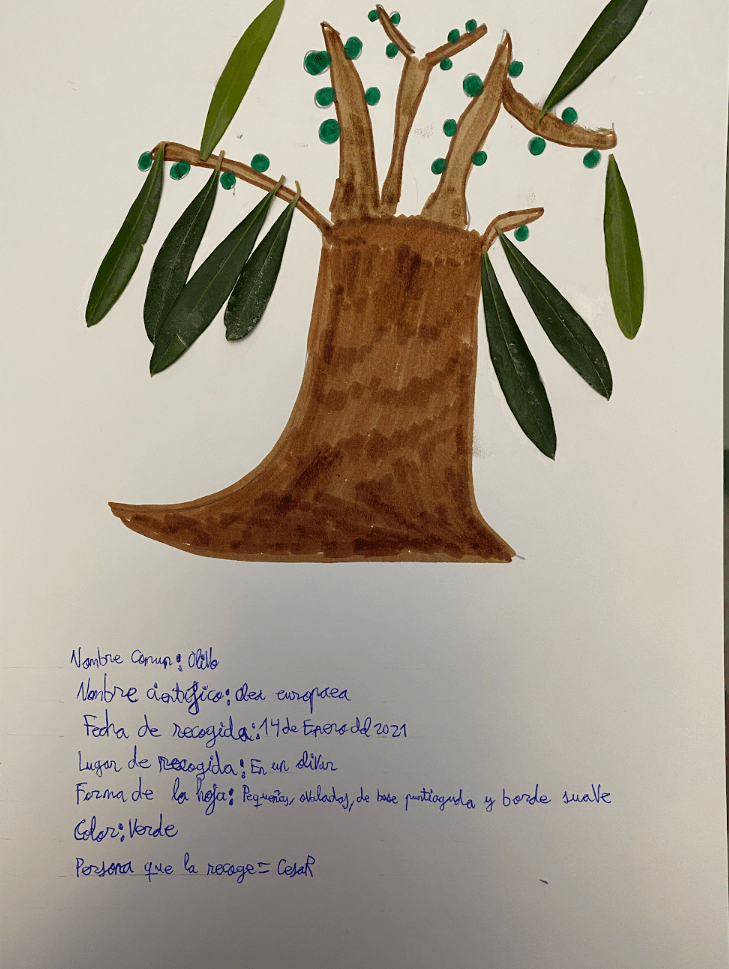 Nombre Comun: Olivo
Nombre cientifico: olea europaea
Fecha de recogida: 14 de Enero del 2021
Lugar de recogida: En un olivar
Forma de la hoja: Pequeñas, ovaladas, de base puntiaguda y borde suave
Color: Verde
Persona que la recoge = CesaR